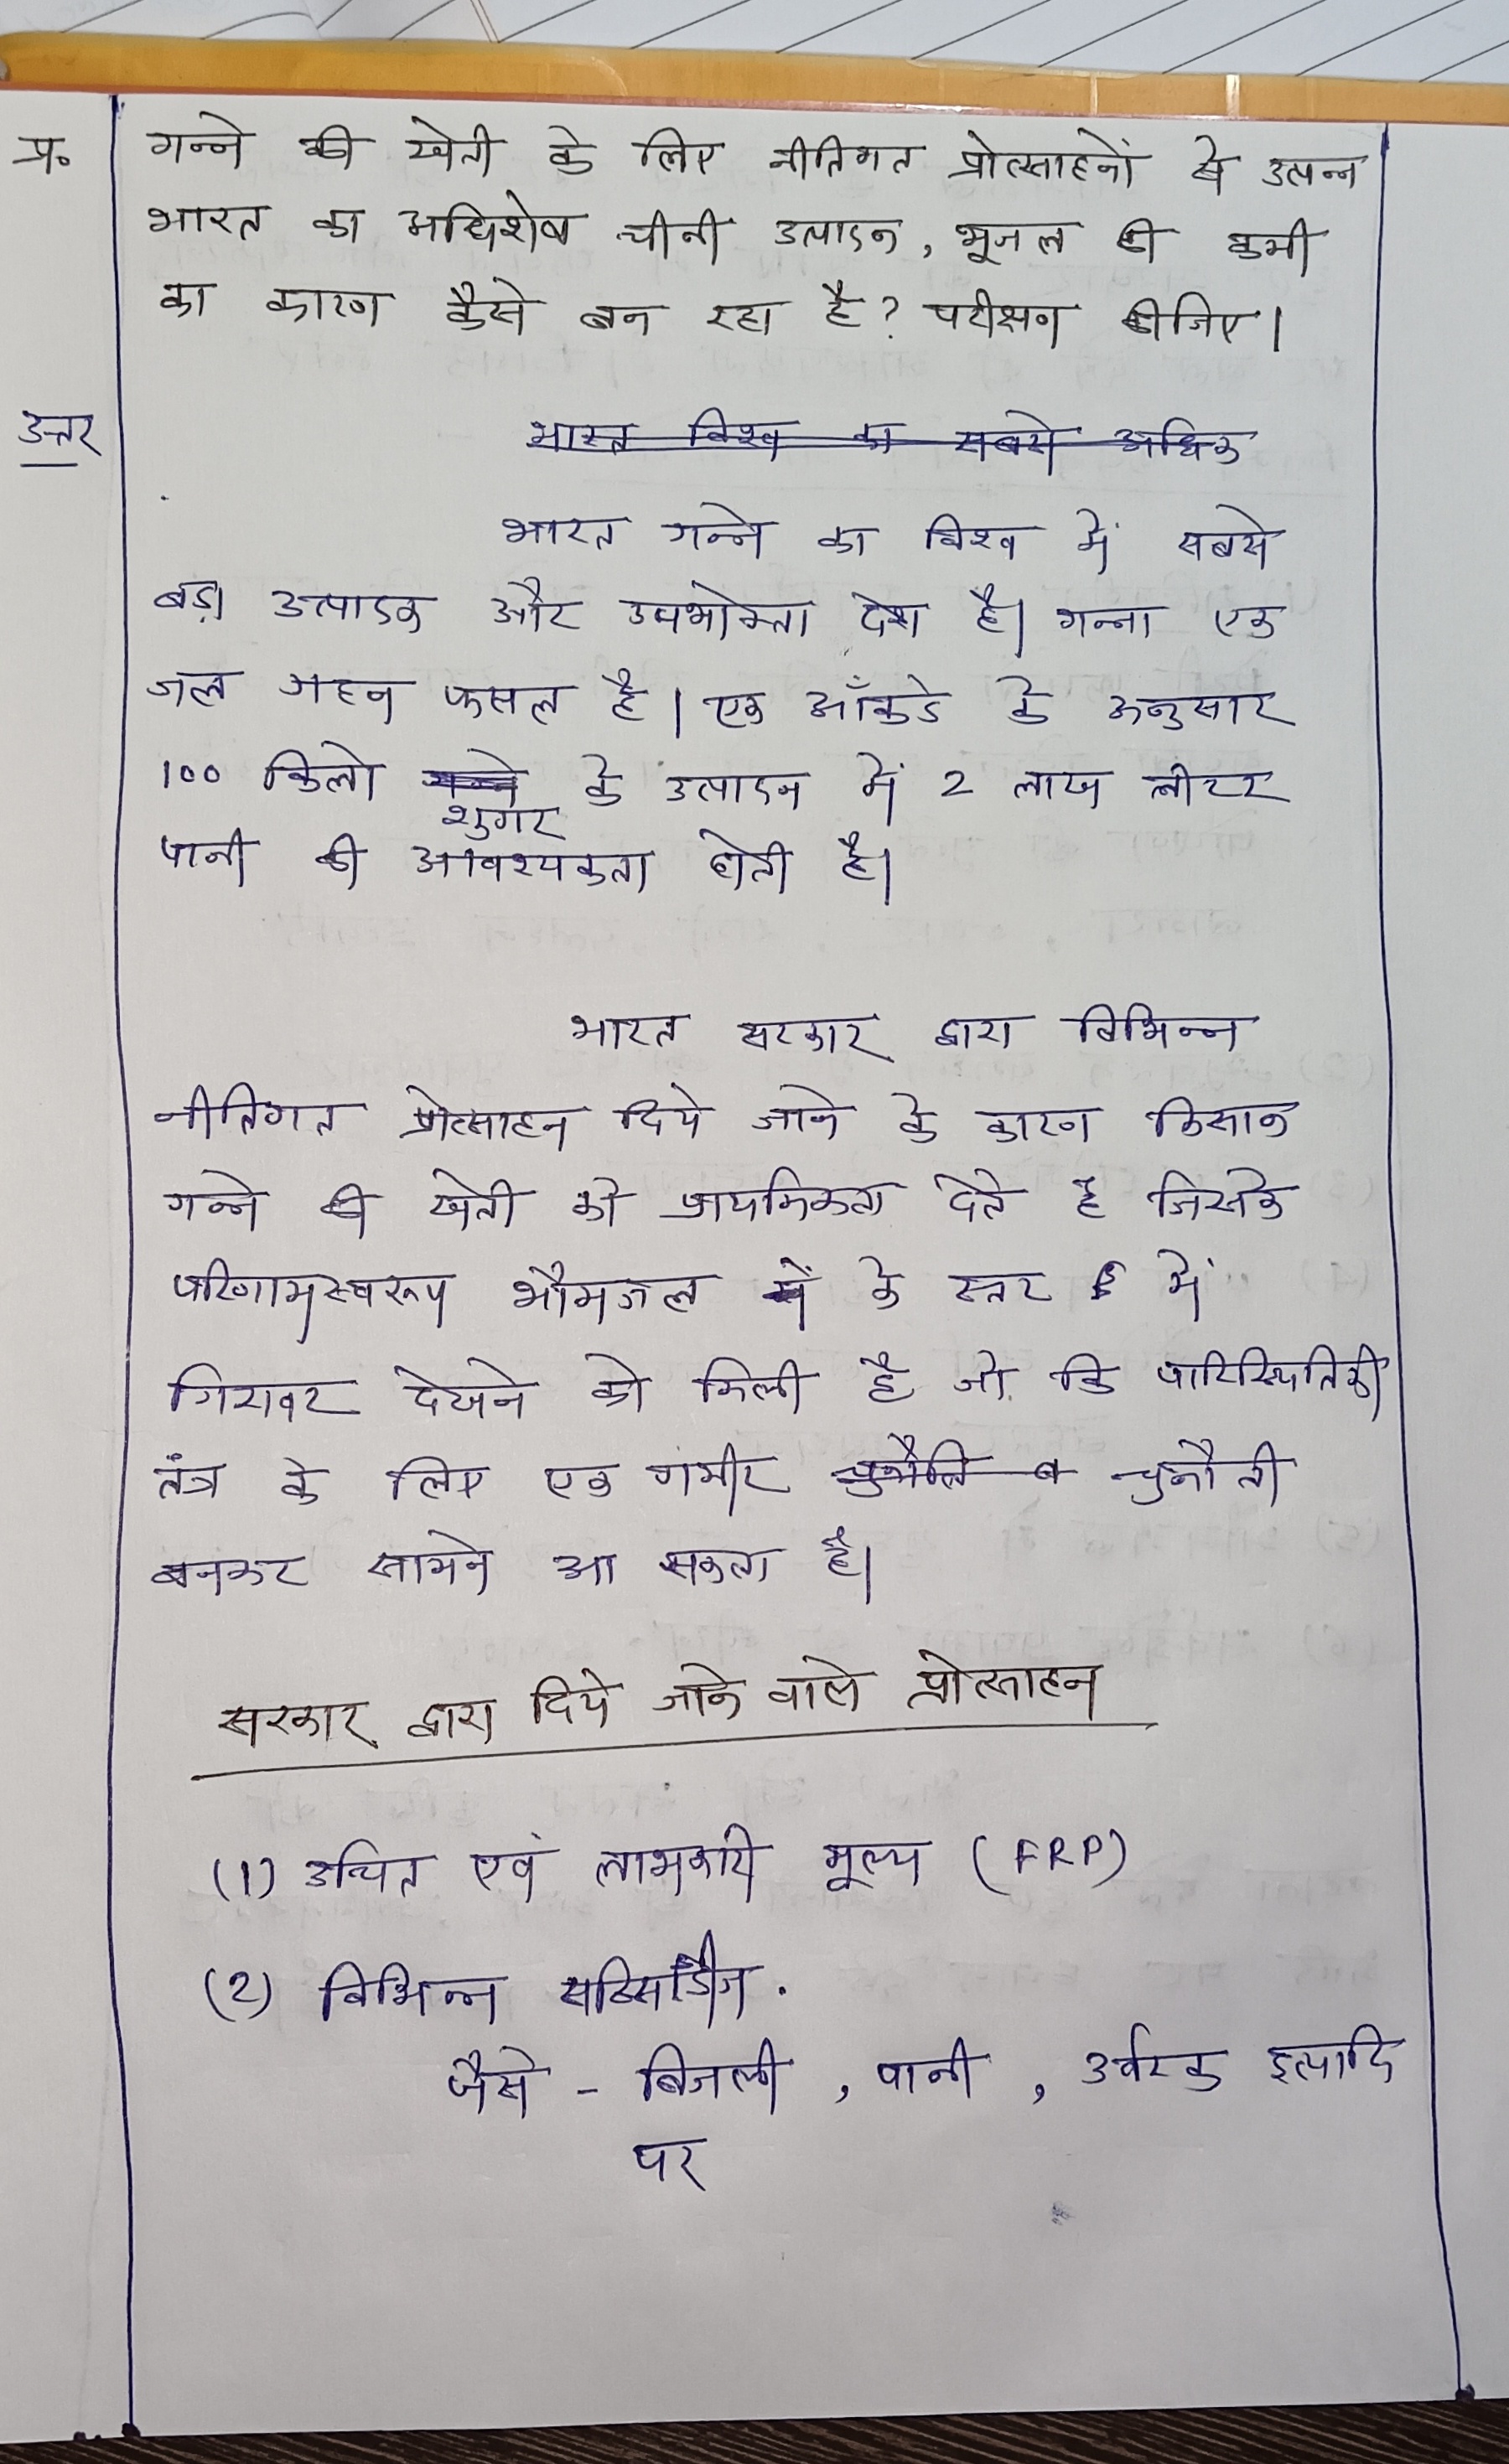 प्र. गन्ने की खेती के लिए नीतिगत प्रोत्साहनों से उत्पन्न
भारत का अधिशेष चीनी उत्पादन, भूजल की कमी
का कारण कैसे बन रहा है? परीक्षण कीजिए।
उत्तर भारत विश्व का सबसे अधिक
भारत गन्ने का विश्व में सबसे
बड़ा उत्पादक और उपभोक्ता देश है। गन्ना एक
जल गहन फसल है। एक आँकडे के अनुसार
100 किलो गन्ने के उत्पादन में 2 लाख लीटर
शुगर
पानी की आवश्यकता होती है।
भारत सरकार द्वारा विभिन्न
नीतिगत प्रोत्साहन दिये जाने के कारण किसान
गन्ने की खेती को प्राथमिकता देते है जिसके
परिणामस्वरूप भौमजल में के स्तर में
गिरावट देखने को मिली है जो कि पारिस्थितिकी
तंत्र के लिए एक गंभीर चुनौति ब चुनौती
बनकर सामने आ सकता है।
सरकार द्वारा दिये जाने वाले प्रोत्साहन
(1) उचित एवं लाभकारी मूल्य (FRP)
(2) विभिन्न सब्सिडीज.
जैसे - बिजली , पानी , उर्वरक इत्यादि
पर